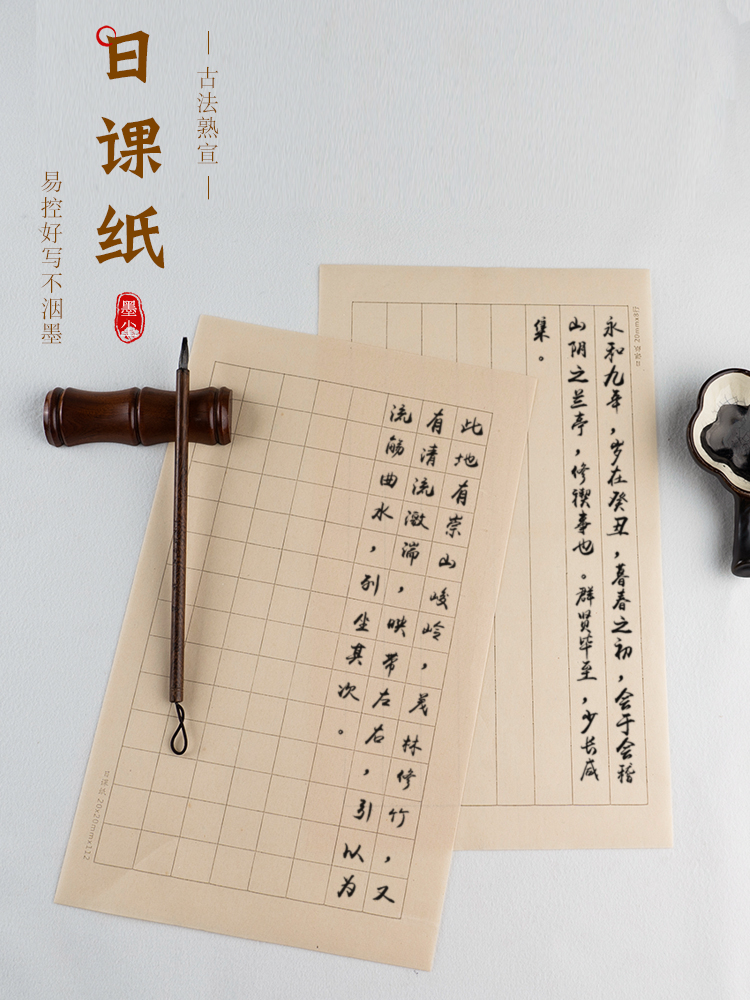 日课纸
古法熟宣
易控好写不洇墨
永和九年，岁在癸丑，暮春之初，会于会稽
山阴之兰亭，修禊事也。群贤毕至，少长咸
集。
此地有崇山峻岭，茂林修竹，又
有清流激湍，映带左右，引以为
流觞曲水，列坐其次。
日课纸20x20mmx112